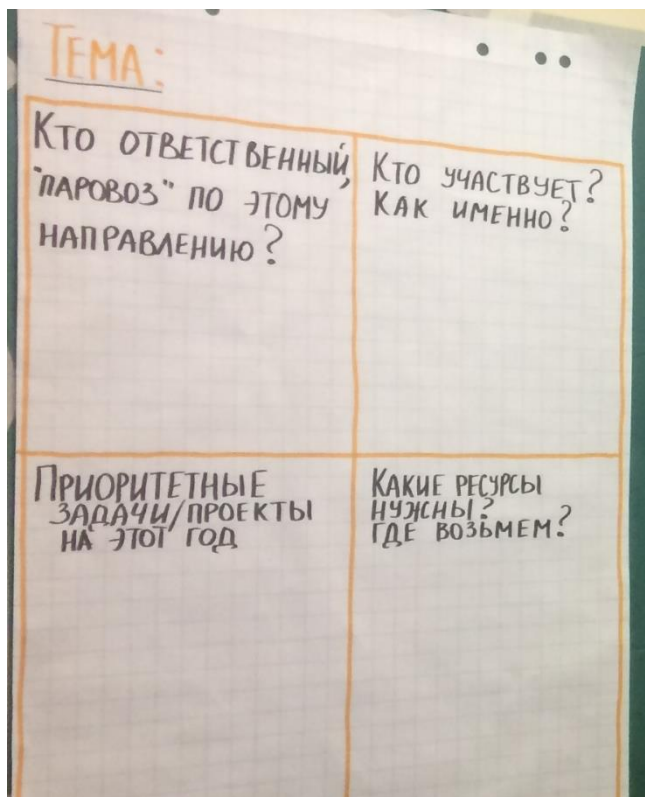 ТЕМА:
КТО ОТВЕТСТВЕННЫЙ,
"ПАРОВОЗ" ПО ЭТОМУ
НАПРАВЛЕНИЮ?
КТО УЧАСТВУЕТ?
КАК ИМЕННО?
ПРИОРИТЕТНЫЕ
ЗАДАЧИ/ПРОЕКТЫ
НА ЭТОТ ГОД
КАКИЕ РЕСУРСЫ
НУЖНЫ?
ГДЕ ВОЗЬМЕМ?